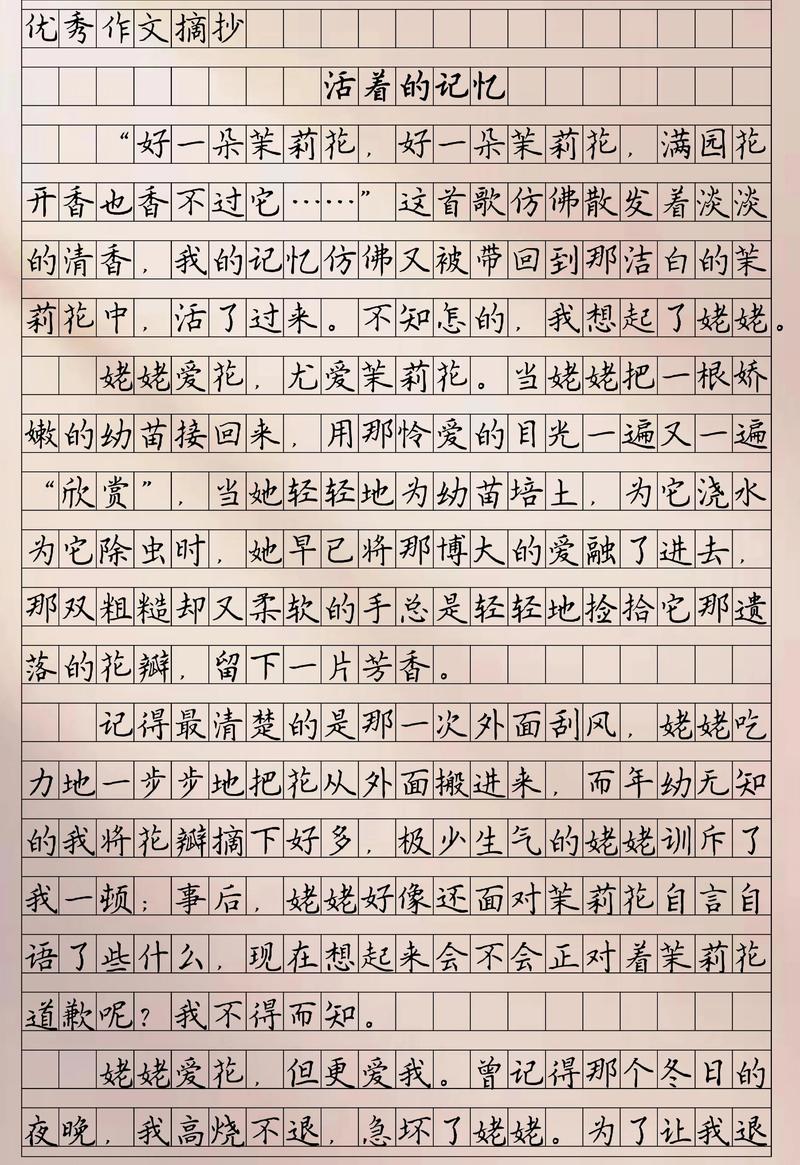 优秀作文摘抄
活着的记忆
“好一朵茉莉花，好一朵茉莉花，满园花
开香也香不过它……”这首歌仿佛散发着淡淡
的清香，我的记忆仿佛又被带回到那洁白的茉
莉花中，活了过来。不知怎的，我想起了姥姥。
姥姥爱花，尤爱茉莉花。当姥姥把一根娇
嫩的幼苗接回来，用那怜爱的目光一遍又一遍
“欣赏”，当她轻轻地为幼苗培土，为它浇水
为它除虫时，她早已将那博大的爱融了进去，
那双粗糙却又柔软的手总是轻轻地捡拾它那遗
落的花瓣，留下一片芳香。
记得最清楚的是那一次外面刮风，姥姥吃
力地一步步地把花从外面搬进来，而年幼无知
的我将花瓣摘下好多，极少生气的姥姥训斥了
我一顿；事后，姥姥好像还面对茉莉花自言自
语了些什么，现在想起来会不会正对着茉莉花
道歉呢？我不得而知。
姥姥爱花，但更爱我。曾记得那个冬日的
夜晚，我高烧不退，急坏了姥姥。为了让我退